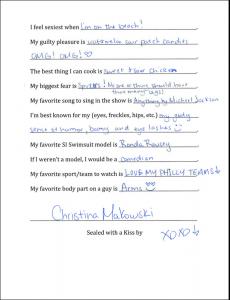 I feel sexiest when I'm on the beach!
My guilty pleasure is watermelon sour patch candies
OMG! OMG! ♡
The best thing I can cook is Sweet & Sour Chicken
My biggest fear is Spiders! No one or thing should have
that many legs!
My favorite song to sing in the show is Anything by Michael Jackson
I'm best known for my (eyes, freckles, hips, etc.) my goofy
sense of humor, booty and eye lashes
My favorite SI Swimsuit model is Ronda Rousey
If I weren't a model, I would be a comedian
My favorite sport/team to watch is LOVE MY PHILLY TEAMS
My favorite body part on a guy is Arms
Christina Makowski
Sealed with a Kiss by XOXO